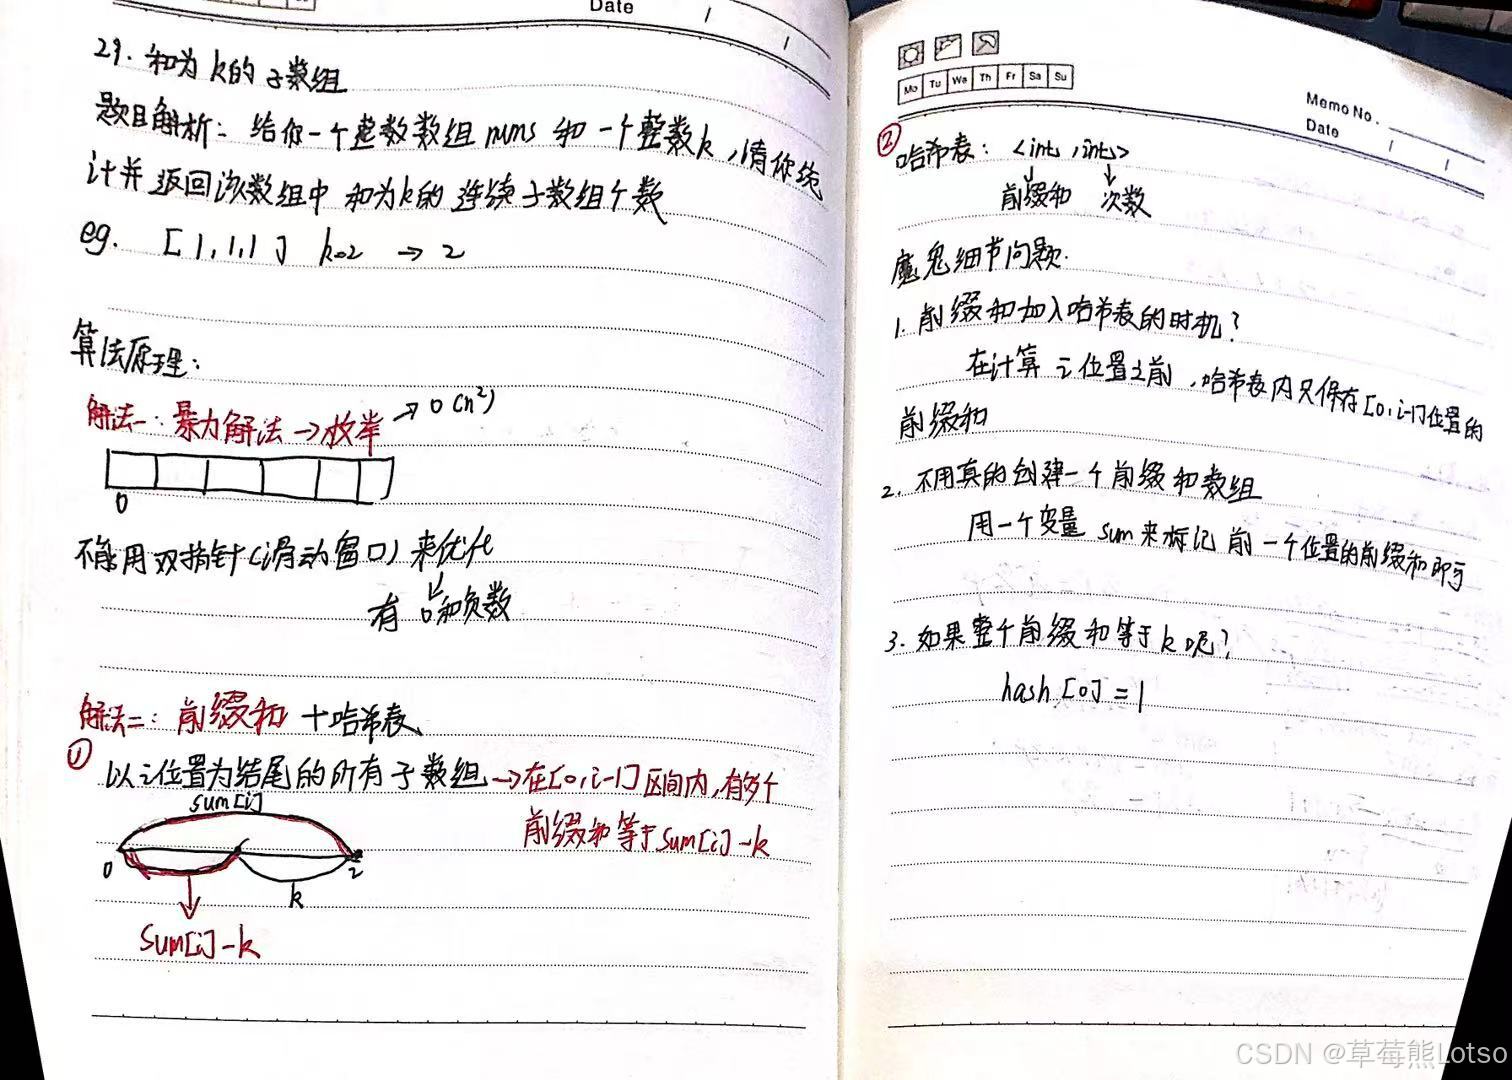 Date
29. 和为k的子数组
题目解析：给你一个整数数组 nums 和 一个整数k，请你统
计并返回该数组中 和为k的 连续子数组个数
eg. [1,1,1] k=2 → 2
算法原理：
解法一：暴力解法 → 枚举 → O(n²)
0
不能用双指针(滑动窗口) 来优化
有 0和负数
解法二：前缀和 + 哈希表
①
以i位置为结尾的所有子数组 → 在[0,i-1]区间内，有多个
前缀和等于sum[i]-k
sum[i]
0
i
k
sum[i]-k
Mo Tu We Th Fr Sa Su
Memo No.
Date
② 哈希表：<int, int>
前缀和 次数
魔鬼细节问题.
1. 前缀和加入哈希表的时机？
在计算 i位置之前，哈希表内只保存[0,i-1]位置的
前缀和
2. 不用真的创建一个前缀和数组
用一个变量 sum来标记 前一个位置的前缀和即可
3. 如果整个前缀和等于k呢？
hash[0] = 1
CSDN @草莓熊Lotso